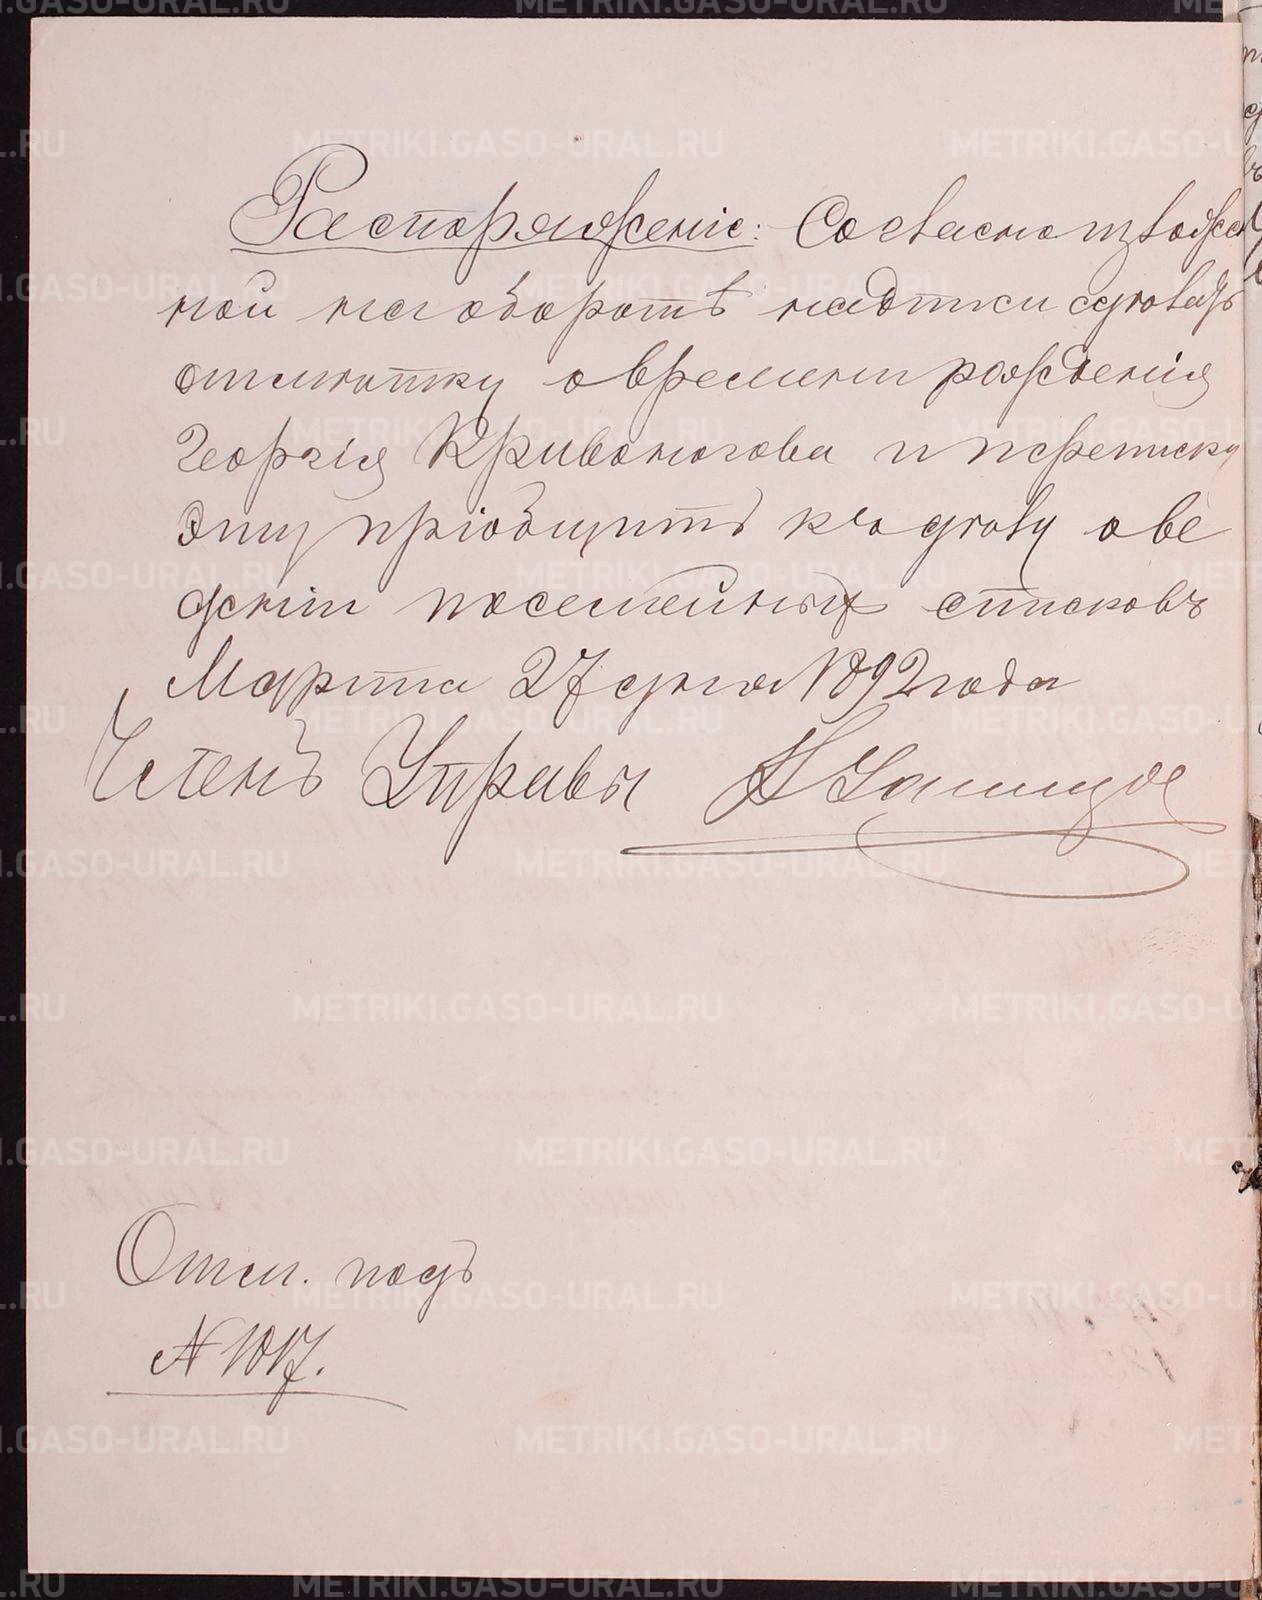 Распоряженіе: Согласно изложен
ной на оборотѣ надписи сдѣлать
отмѣтку о времени рожденія
Георгія Кривоногова и переписку
эту пріобщить къ дѣлу о ве
деніи посемейныхъ списковъ
Марта 27 дня 1892 года
Членъ Управы
Отм. подъ
№ 1017.
METRIKI.GASO-URAL.RU